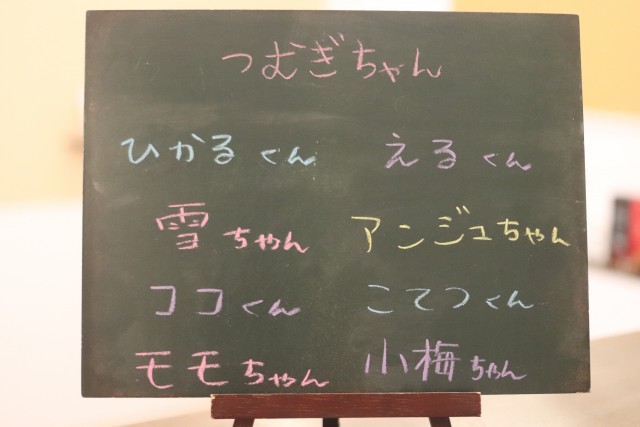 つむぎちゃん
ひかるくん えるくん
雪ちゃん アンジュちゃん
ココくん こてつくん
モモちゃん 小梅ちゃん